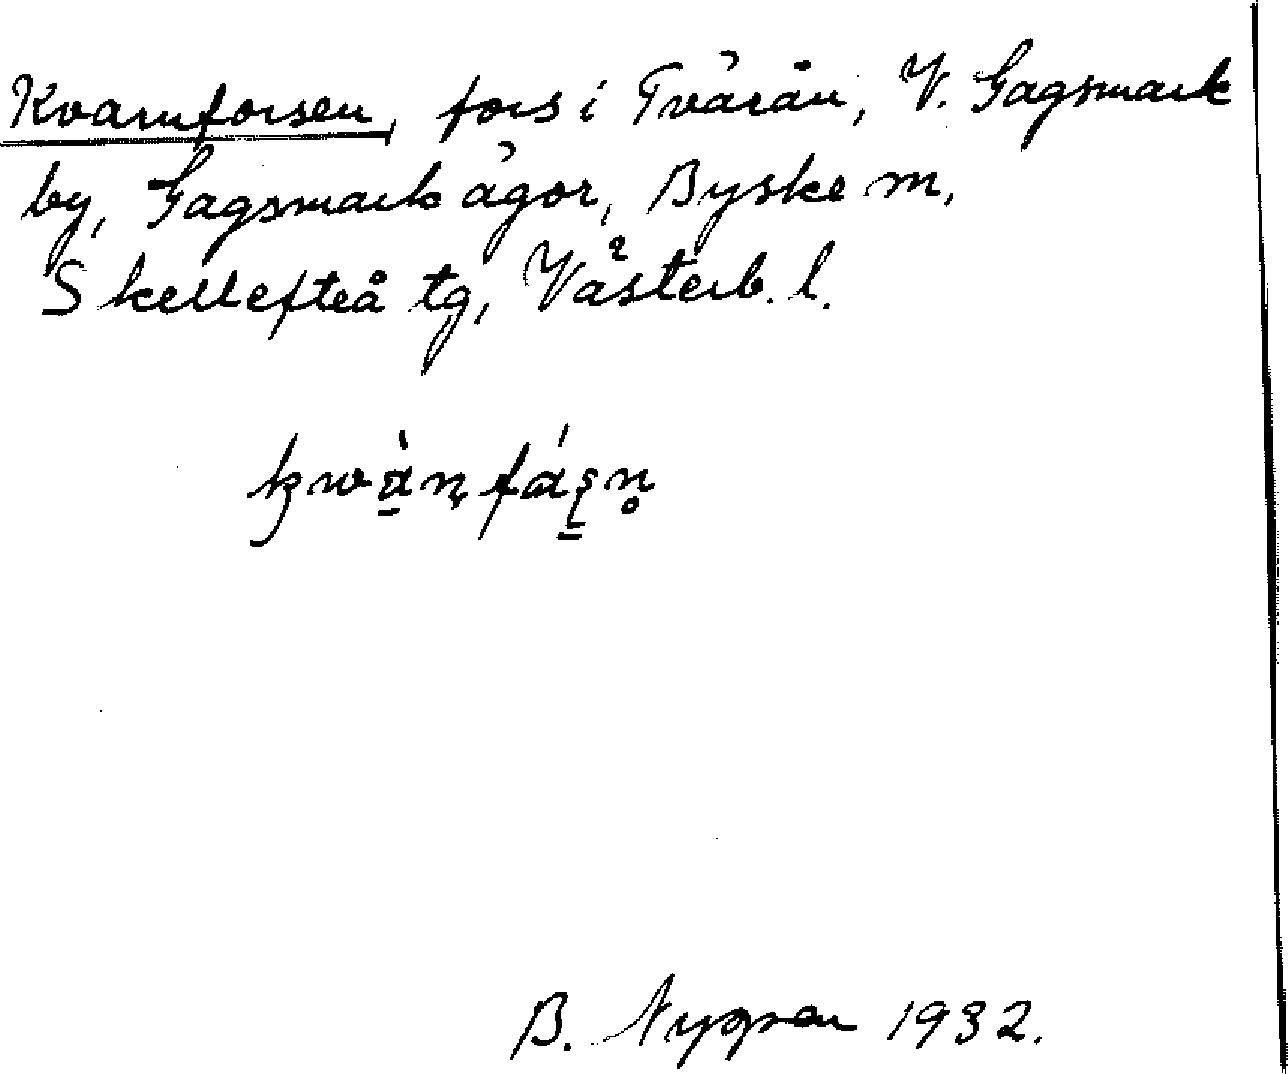 Kvarnforsen, fors i Tvärån, V. Gagsmark
by, Gagsmark ägor, Byske m,
Skellefteå tg, Västerb. l.
B. Nygren 1932.